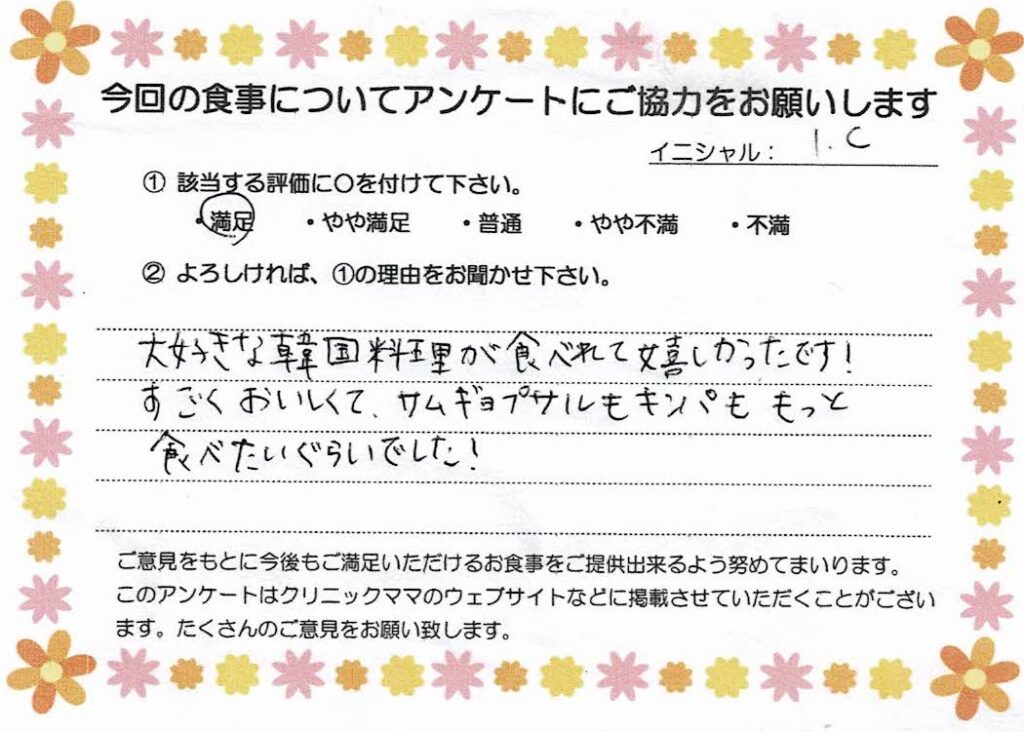 今回の食事についてアンケートにご協力をお願いします
イニシャル： I.C
① 該当する評価に〇を付けて下さい。
・満足 ・やや満足 ・普通 ・やや不満 ・不満
② よろしければ、①の理由をお聞かせ下さい。
大好きな韓国料理が食べれて嬉しかったです！
すごくおいしくて、サムギョプサルもキンパももっと
食べたいぐらいでした！
ご意見をもとに今後もご満足いただけるお食事をご提供出来るよう努めてまいります。
このアンケートはクリニックママのウェブサイトなどに掲載させていただくことがござい
ます。たくさんのご意見をお願い致します。